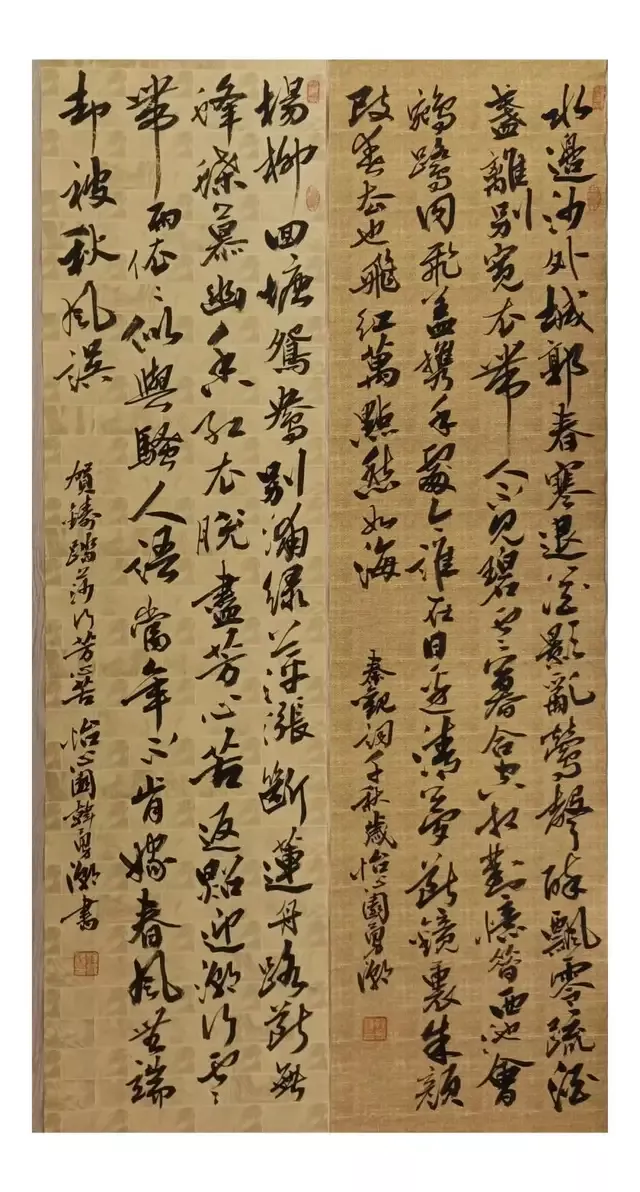 水邊沙外城郭春寒退花影亂鶯聲碎飄零疏酒
盞離別寬衣帶人不見碧雲暮合空相對憶昔西池會
鵷鷺同飛盖攜手處今誰在日边清夢斷鏡裏朱顏
改春去也飛紅萬點愁如海
秦觀詞千秋歲怡心園勇潮
楊柳回塘鴛鴦別浦綠萍漲斷蓮舟路斷無
蜂蝶慕幽香紅衣脫盡芳心苦返照迎潮行雲
帶雨依依似與騷人語當年不肯嫁春風無端
却被秋風誤
賀鑄踏莎行芳心苦怡心園韓勇潮書